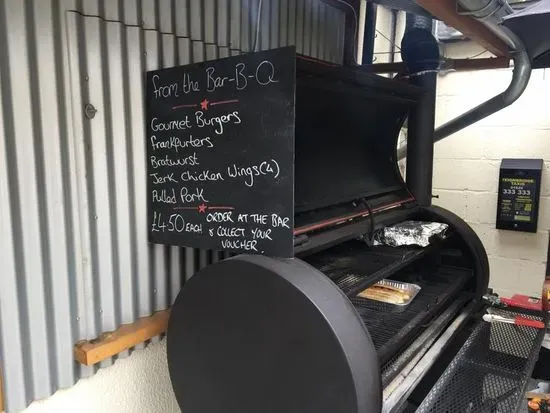 from the Bar-B-Q
Gourmet Burgers
Frankfurters
Bratwurst
Jerk Chicken Wings (4)
Pulled Pork
£4.50 EACH
ORDER AT THE BAR
& COLLECT YOUR
VOUCHER.
TEIGNBRIDGE
TAXIS
333 333